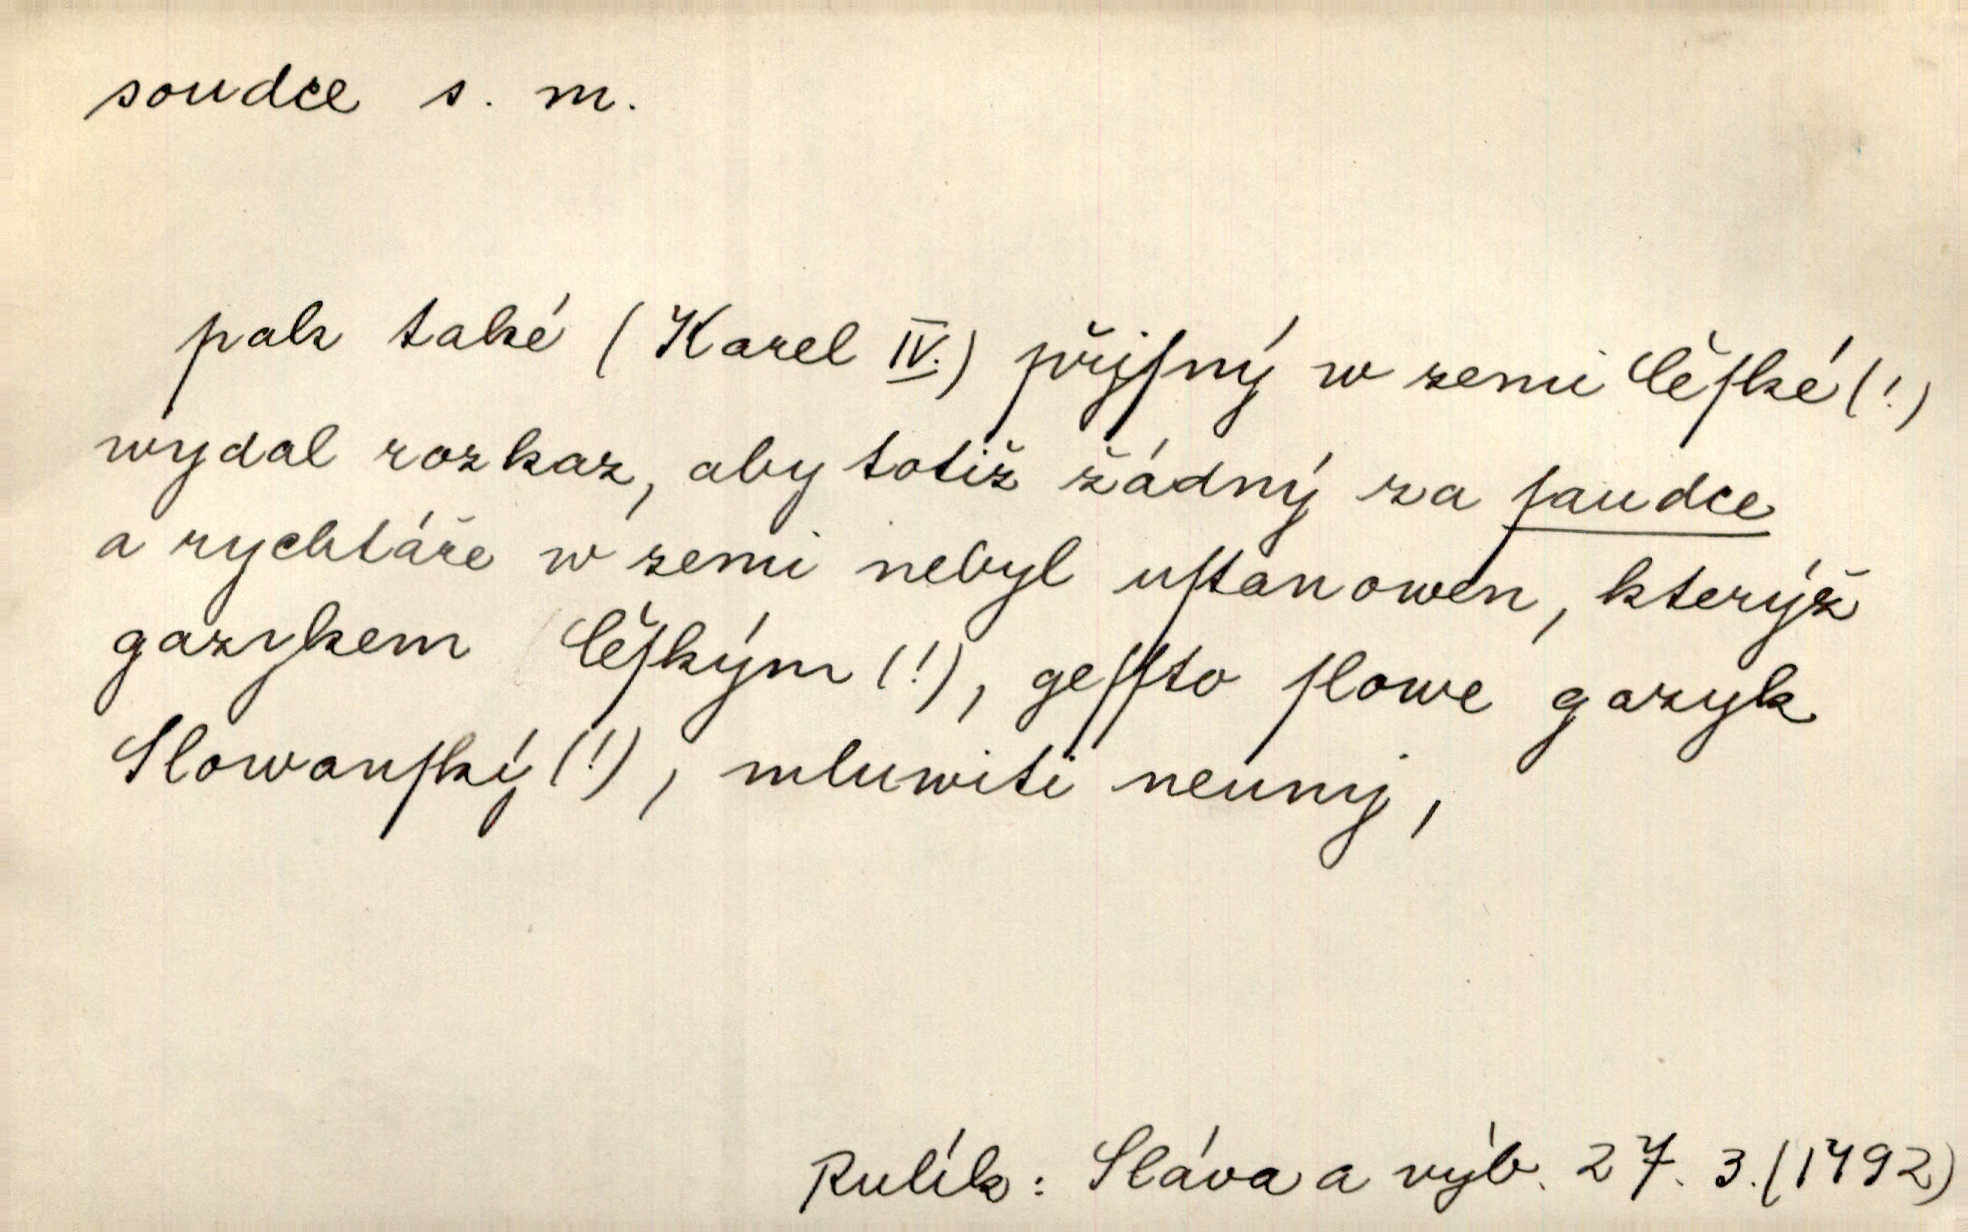 soudce s. m.
pak také (Karel IV.) přjſný w zemi Cěſké (!)
wydal rozkaz, aby totiž žádný za ſaudce
a rychtáře w zemi nebyl uſtanowen, kterýž
gazykem Cěſkým (!), geſſto ſlowe gazyk
Slowanſký (!), mluwiti neumj,
Rulík: Sláva a výb. 27. 3. (1792)